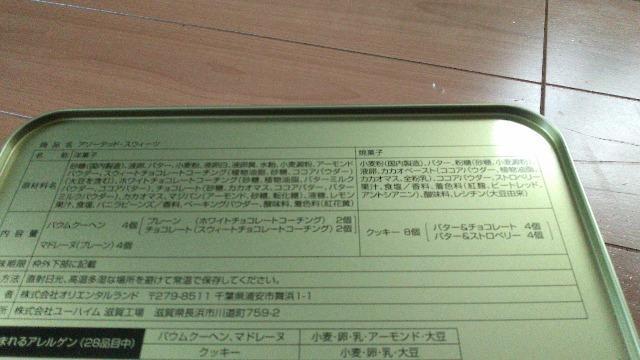 商品名 アソーテッド・スウィーツ
名称 洋菓子 焼菓子
原材料名
砂糖(国内製造)、液卵、バター、小麦粉、液卵白、液卵黄、水飴、小麦澱粉、アーモンド
パウダー、スウィートチョコレートコーチング(植物油脂、砂糖、ココアパウダー)
(大豆を含む)、ホワイトチョコレートコーチング(砂糖、植物油脂、バターミルク
パウダー、ココアバター)、チョコレート(砂糖、カカオマス、ココアバター、バター
ミルクパウダー)、カカオマス、マジパン(アーモンド、砂糖、転化糖)、液糖、レモン
果汁、食塩、バニラビーンズ/香料、ベーキングパウダー、酸味料、着色料(紅花黄)
小麦粉(国内製造)、バター、粉糖(砂糖、小麦澱粉)、
液卵、カカオペースト(ココアパウダー、植物油脂、
カカオマス、全粉乳)、ココアパウダー、ストロベリー
果汁、食塩/香料、着色料(紅麹、ビートレッド、
アントシアニン)、酸味料、レシチン(大豆由来)
内容量
バウムクーヘン 4個 プレーン (ホワイトチョコレートコーチング) 2個
チョコレート(スウィートチョコレートコーチング) 2個
マドレーヌ(プレーン) 4個
クッキー 8個 バター&チョコレート 4個
バター&ストロベリー 4個
味期限 枠外下部に記載
方法 直射日光、高温多湿な場所を避けて常温で保存してください。
者 株式会社オリエンタルランド 〒279-8511 千葉県浦安市舞浜1-1
所 株式会社ユーハイム 滋賀工場 滋賀県長浜市川道町759-2
まれるアレルゲン(28品目中) バウムクーヘン、マドレーヌ 小麦・卵・乳・アーモンド・大豆
クッキー 小麦・卵・乳・大豆